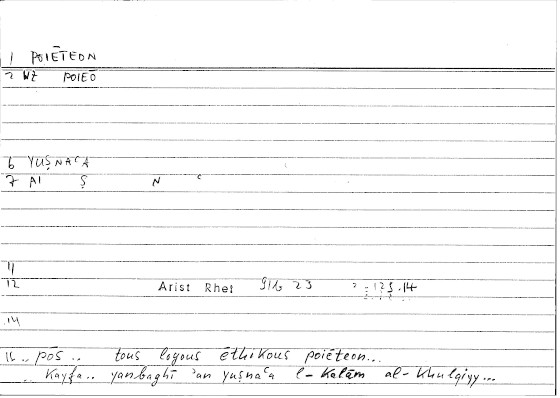 1 POIĒTEON
2 WZ POIEŌ
6 YUṢNAʿA
7 AI Ṣ N ʿ
11
12 Arist Rhet 91b 23 : 175.14
14
16 .. pōs .. tous logous ēthikous poiēteon...
.. Kayfa .. yanbaghī ʾan yuṣnaʿa l-Kalām al-Khulqiyy...